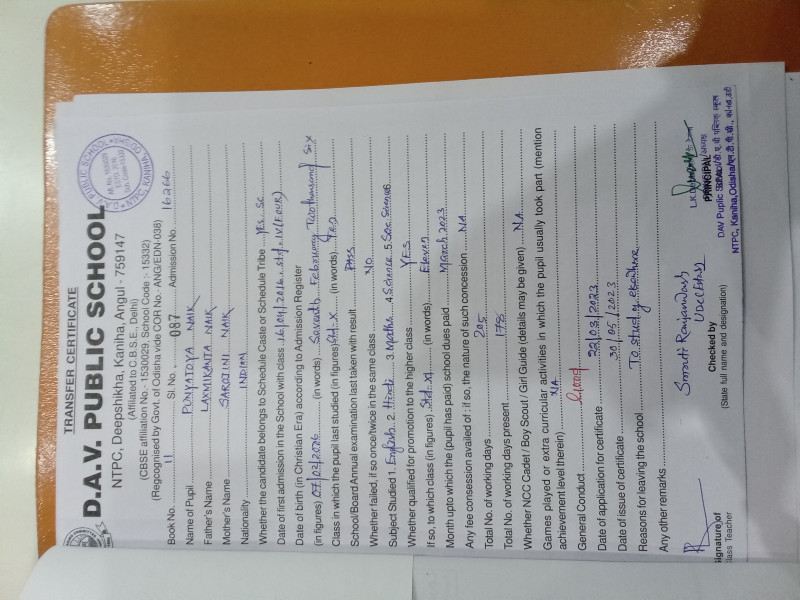 TRANSFER CERTIFICATE
D.A.V. PUBLIC SCHOOL
NTPC, Deepshikha, Kaniha, Angul - 759147
(Affiliated to C.B.S.E., Delhi)
(CBSE affiliation No.- 1530029, School Code :- 15332)
(Regcognised by Govt. of Odisha vide COR No.- ANG/EDN-038)
Book No. 11 Sl. No. 087 Admission No. 16266
Name of Pupil PUNYATOYA NAIK
Father's Name LAXMIKANTA NAIK
Mother's Name SAROJINI NAIK
Nationality INDIAN
Whether the candidate belongs to Schedule Caste or Schedule Tribe Yes. SC
Date of first admission in the School with class 16/04/2016. Std. IV (FOUR)
Date of birth (in Christian Era) according to Admission Register
(in figures) 07/02/2006 (in words) Seventh February Two thousand Six
Class in which the pupil last studied (in figures) Std. X (in words) Ten
School/Board Annual examination last taken with result PASS
Whether failed, if so once/twice in the same class NO
Subject Studied 1. English 2. Hindi 3. Maths 4. Science 5. Soc. Science 6.
Whether qualified for promotion to the higher class YES
If so, to which class (in figures) Std. XI (in words) Eleven
Month upto which the (pupil has paid) school dues paid March 2023
Any fee consession availed of : if so, the nature of such concession NA
Total No. of working days 205
Total No. of working days present 178
Whether NCC Cadet / Boy Scout / Girl Guide (details may be given) NA
Games played or extra curricular activities in which the pupil usually took part (mention
achievement level therein) NA
General Conduct Good
Date of application for certificate 22/03/2023
Date of issue of certificate 30/05/2023
Reasons for leaving the school To study elsewhere
Any other remarks
Signature of
Class Teacher
Smruti Ranjan Dash
Checked by
(State full name and designation)
PRINCIPAL
SEAL
NTPC, Kaniha, Odisha